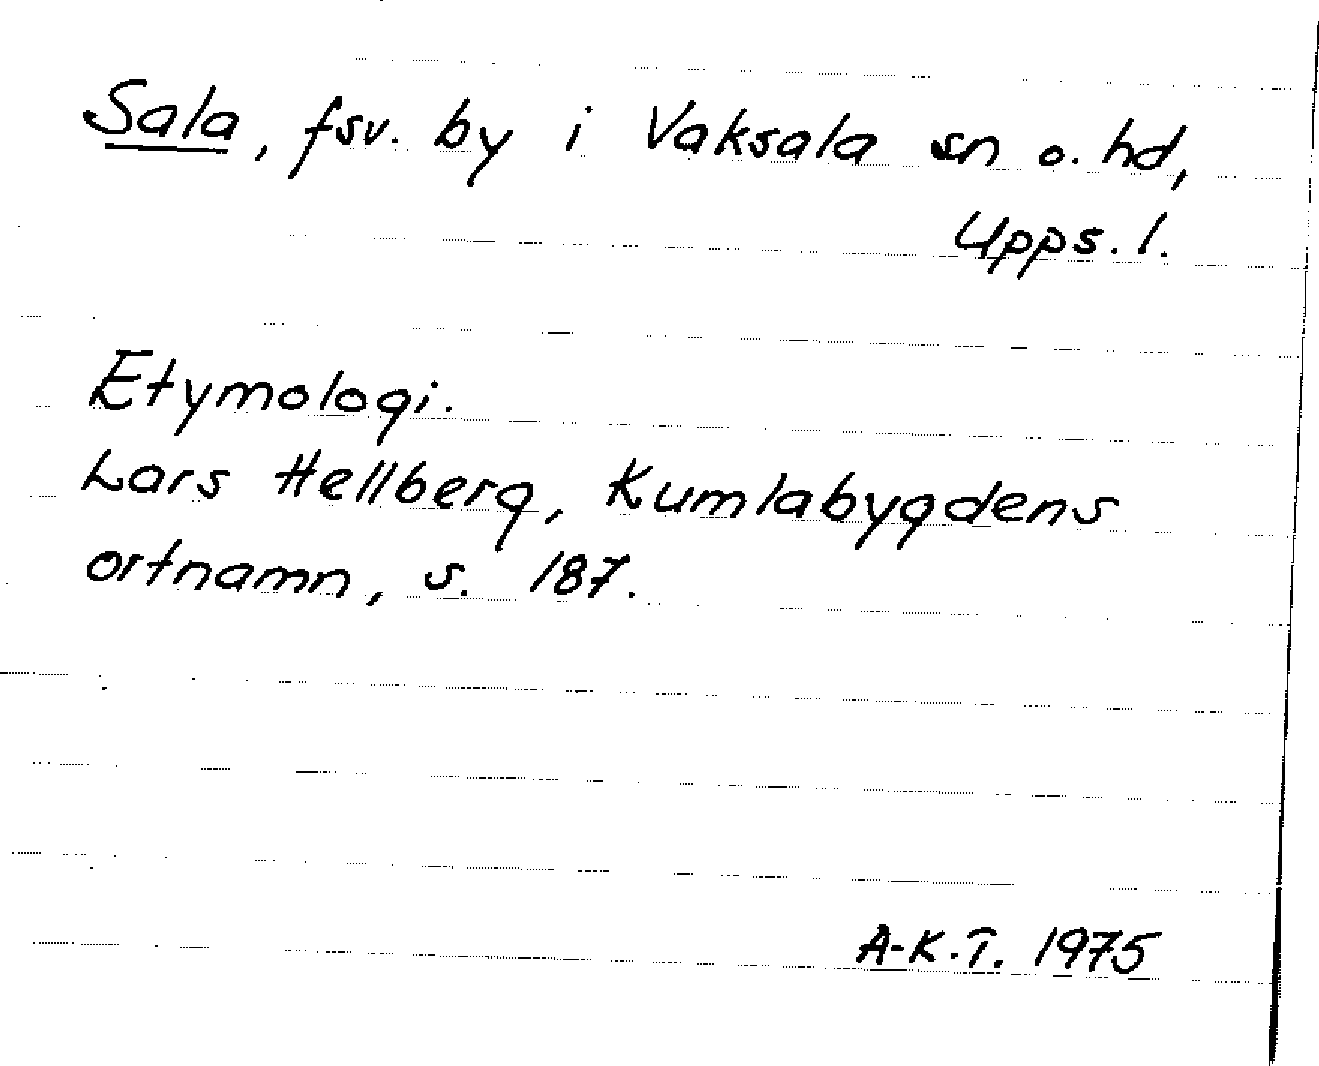 Sala, fsv. by i Vaksala sn o. hd,
Upps. l.
Etymologi.
Lars Hellberg, Kumlabygdens
ortnamn, s. 187.
A-K.T. 1975